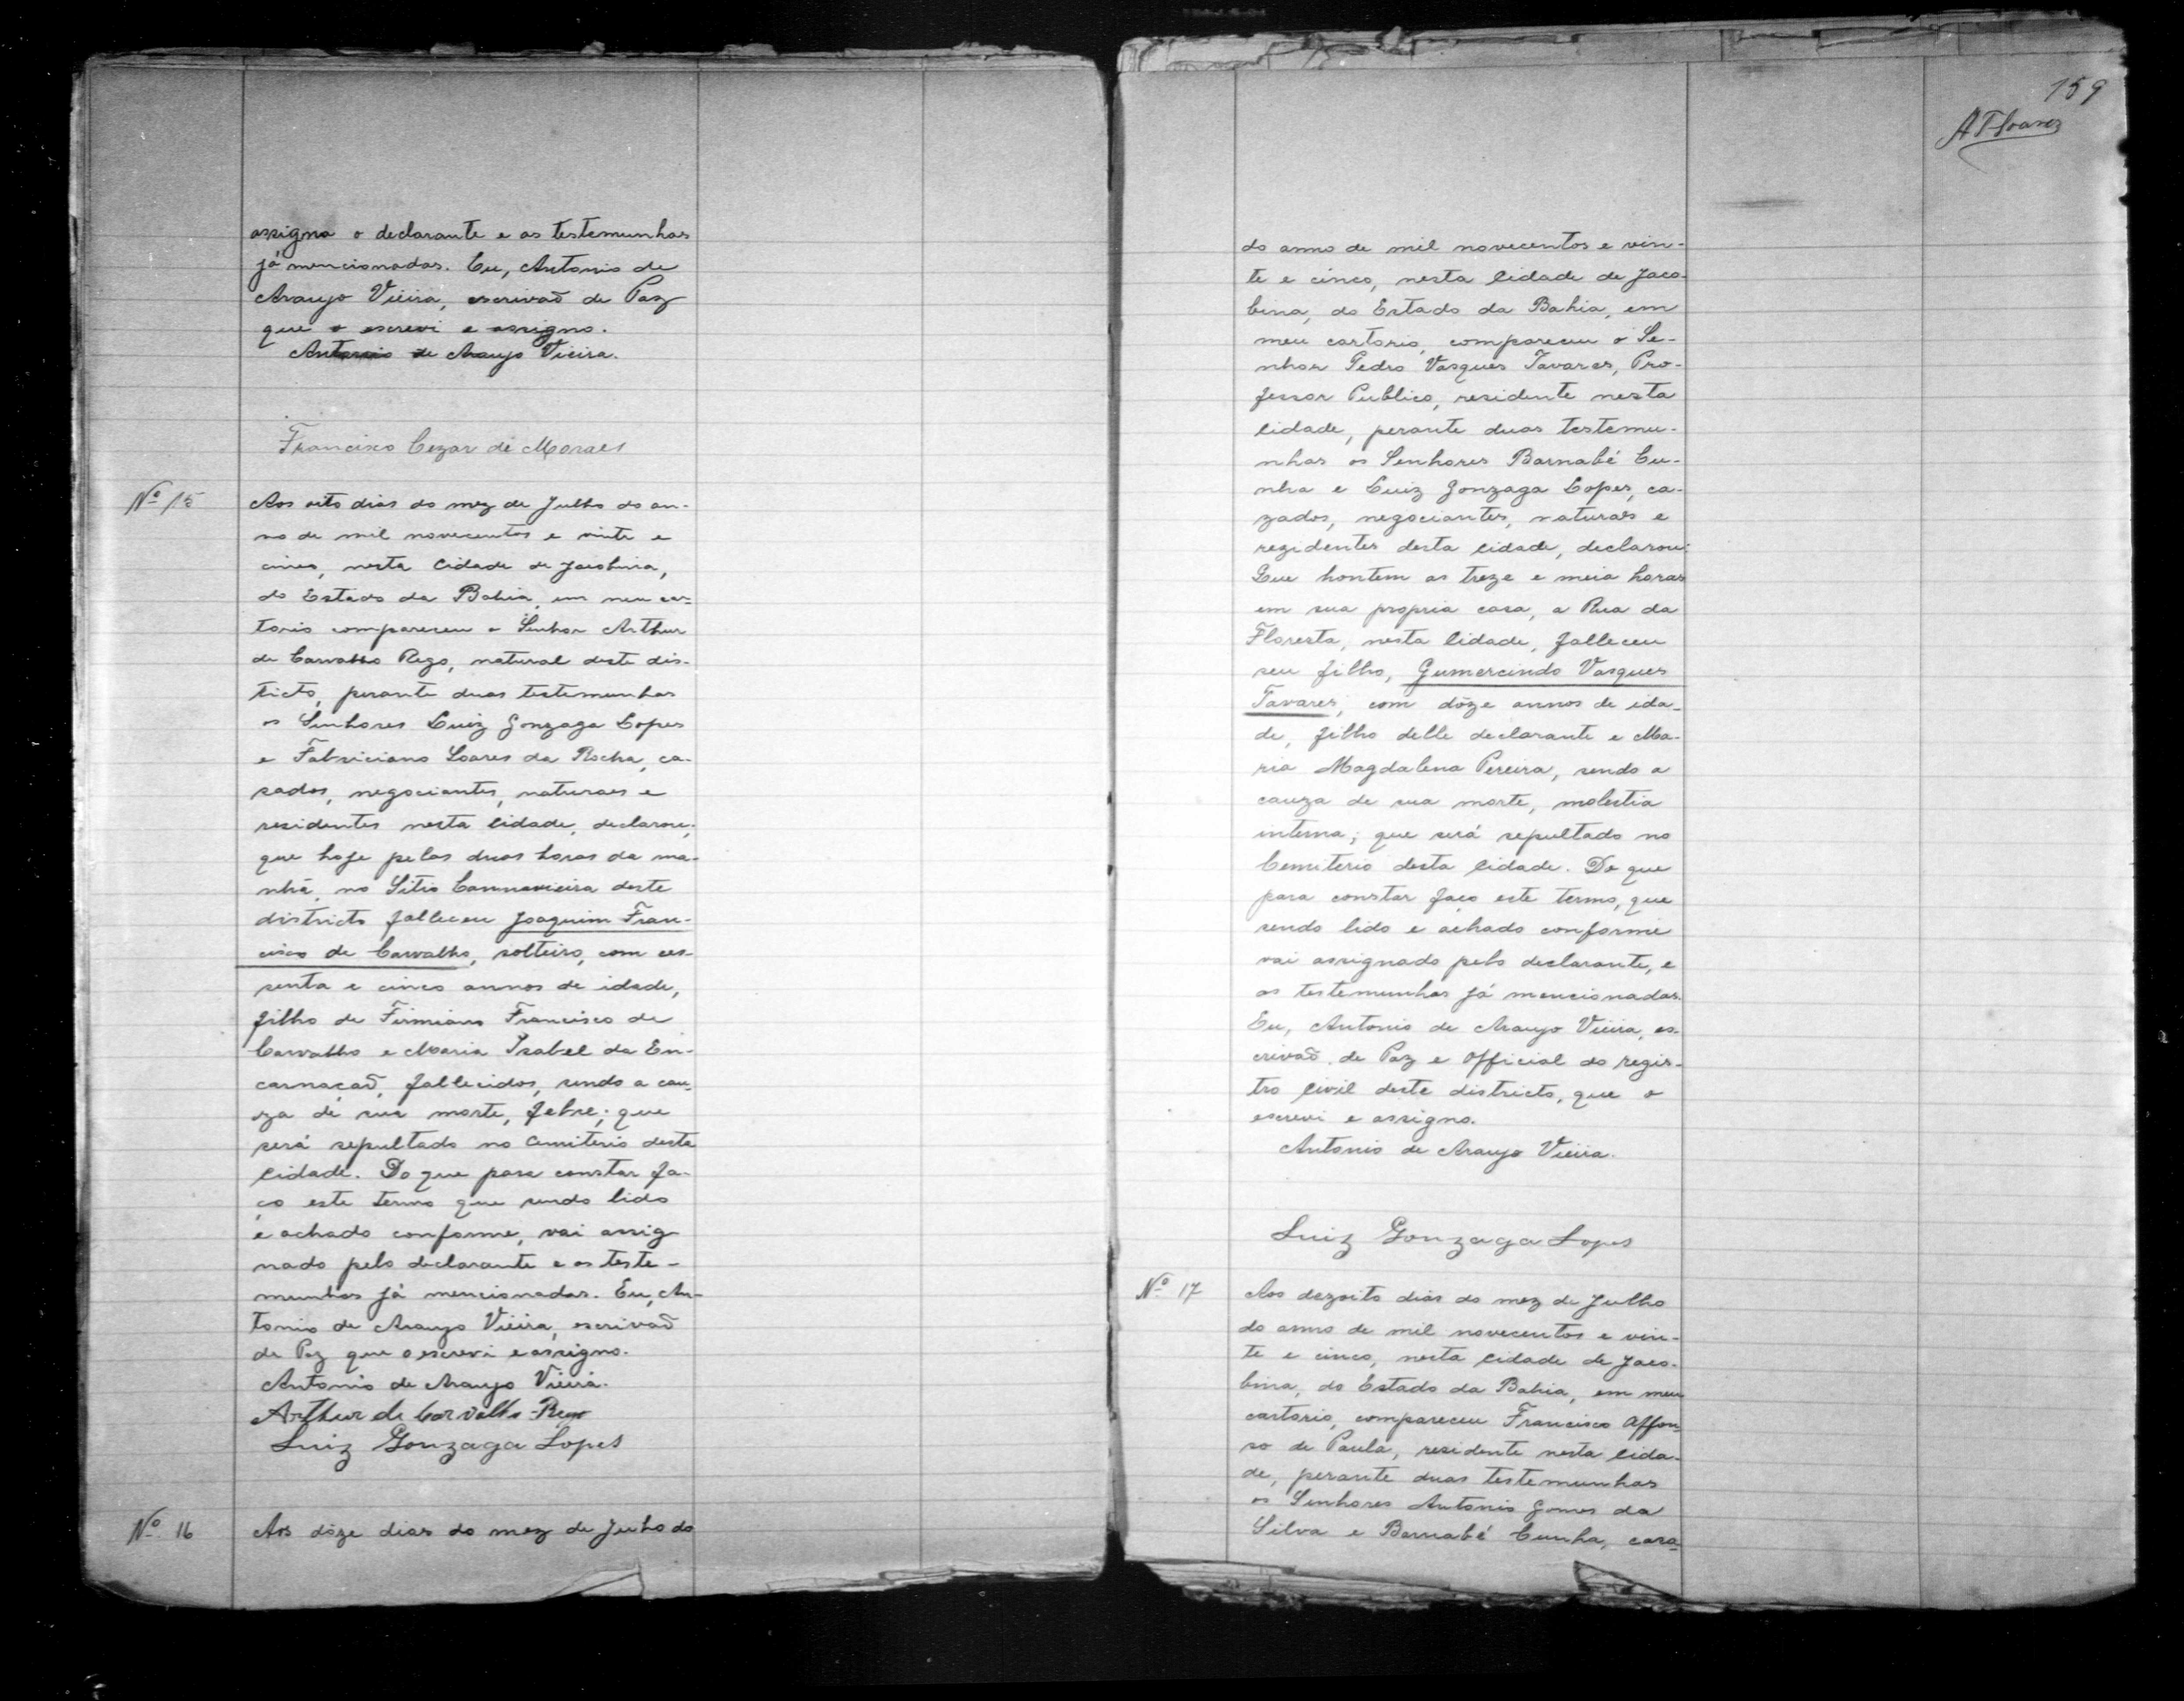 assigna o declarante e as testemunhas
já mencionadas. Eu, Antonio de
Araujo Vieira, escrivaõ de Paz
que o escrevi e assigno.
Antonio de Araujo Vieira.
Francisco Cezar de Moraes
Nº 15
Aos oito dias do mez de Julho do an-
no de mil novecentos e vinte e
cinco, nesta Cidade de Jacobina,
do Estado da Bahia, em meu car-
torio compareceu o Senhor Arthur
de Carvalho Rego, natural deste dis-
tricto, perante duas testemunhas
os Senhores Luiz Gonzaga Lopes
e Fabriciano Soares da Rocha, ca-
sados, negociantes, naturaes e
residentes nesta cidade, declarou,
que hoje pelas duas horas da ma-
nhã, no Sitio Cannavieira deste
districto falleceu Joaquim Fran-
cisco de Carvalho, solteiro, com ses-
senta e cinco annos de idade,
filho de Firmiano Francisco de
Carvalho e Maria Izabel da En-
carnaçaõ, fallecidos, sendo a cau-
za de sua morte, febre; que
será sepultado no Cemiterio desta
cidade. Do que para constar fa-
ço este termo que sendo lido
e achado conforme, vai assig-
nado pelo declarante e as teste-
munhas já mencionadas. Eu, An-
tonio de Araujo Vieira, escrivaõ
de Paz que o escrevi e assigno.
Antonio de Araujo Vieira.
Arthur de Carvalho Rego
Luiz Gonzaga Lopes
Nº 16
Aos dôze dias do mez de Junho do
159
do anno de mil novecentos e vin-
te e cinco, nesta Cidade de Jaco-
bina, do Estado da Bahia, em
meu cartorio, compareceu o Se-
nhor Pedro Vasques Tavares, Pro-
fessor Publico, residente nesta
cidade, perante duas testemu-
nhas os Senhores Barnabé Cu-
nha e Luiz Gonzaga Lopes, ca-
zados, negociantes, naturaes e
rezidentes desta cidade, declarou:
Que hontem as treze e meia horas
em sua propria casa, a Rua da
Floresta, nesta cidade, falleceu
seu filho, Gumercindo Vasques
Tavares, com dôze annos de ida-
de, filho delle declarante e Ma-
ria Magdalena Pereira, sendo a
cauza de sua morte, molestia
interna; que será sepultado no
Cemiterio desta cidade. Do que
para constar faço este termo, que
sendo lido e achado conforme
vai assignado pelo declarante, e
as testemunhas já mencionadas.
Eu, Antonio de Araujo Vieira, es-
crivaõ de Paz e Official do regis-
tro Civil deste districto, que o
escrevi e assigno.
Antonio de Araujo Vieira.
Luiz Gonzaga Lopes
Nº 17
Aos dezoito dias do mez de Julho
do anno de mil novecentos e vin-
te e cinco, nesta cidade de Jaco-
bina, do Estado da Bahia, em meu
cartorio, compareceu Francisco Affon-
so de Paula, residente nesta cida-
de, perante duas testemunhas
os Senhores Antonio Gomes da
Silva e Barnabé Cunha, casa-